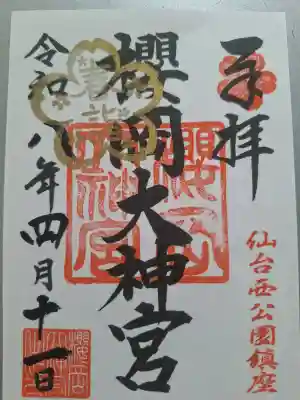 奉拝
櫻岡大神宮
仙台西公園鎮座
令和八年四月十一日